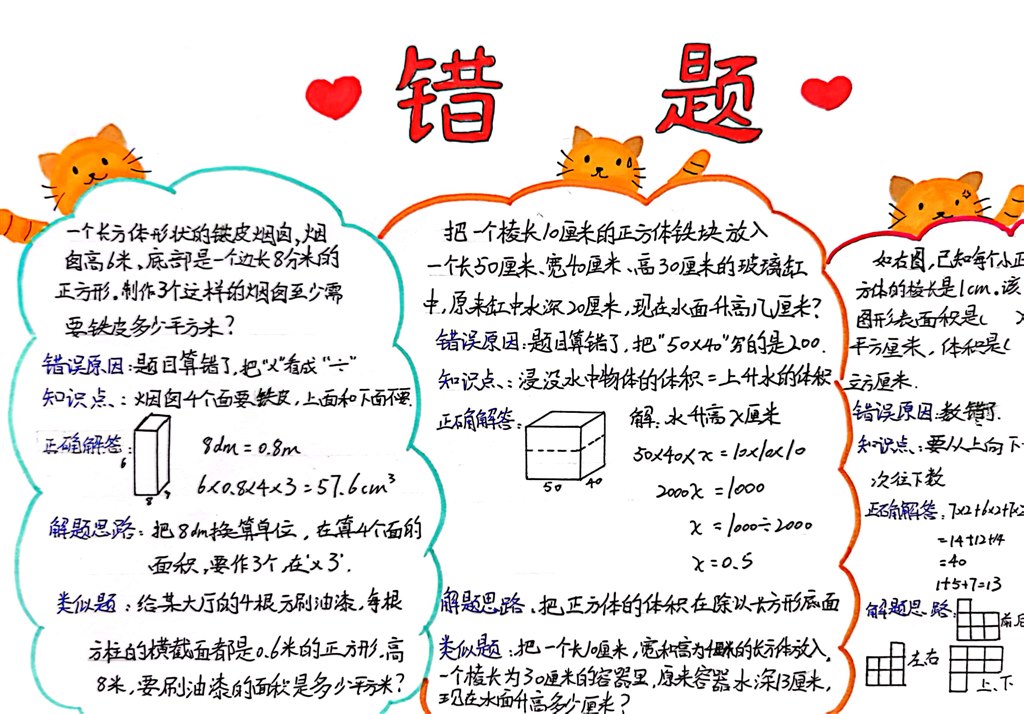 错 题
一个长方体形状的铁皮烟囱,烟
囱高6米,底部是一个边长8分米的
正方形.制作3个这样的烟囱至少需
要铁皮多少平方米?
错误原因:题目算错了,把"x"看成"÷"
知识点、:烟囱4个面要铁皮,上面和下面不要.
正确解答:
6
8
8dm=0.8m
6x0.8x4x3=57.6cm³
解题思路:把8dm换算单位,在算4个面的
面积,要作3个,在'x3'.
类似题:给某大厅的4根方刷油漆,每根
方柱的横截面都是0.6米的正方形,高
8米,要刷油漆的面积是多少平方米?
把一个棱长10厘米的正方体铁块放入
一个长50厘米、宽40厘米、高30厘米的玻璃缸
中,原来缸中水深20厘米,现在水面升高几厘米?
错误原因:题目算错了,把"50x40"穷的是200.
知识点、:浸没水中物体的体积=上升水的体积
正确解答:
50
40
解:水升高x厘米
50x40xx=10x10x10
2000x=1000
x=1000÷2000
x=0.5
解题思路、把正方体的体积在除以长方形底面
类似题:把一个长10厘米,宽和高为4厘米的长方体放入,
一个棱长为30厘米的容器里,原来容器水深13厘米,
现在水面升高多少厘米?
如右图,已知每个小正
方体的棱长是1cm.该
图形表面积是(
平方厘米,体积是(
立方厘米.
错误原因:数错了.
知识点、:要从上向下
次往下数
正确解答:7x2+6x2+7x2
=14+12+14
=40
1+5+7=13
解题思路:
前后
左右
上、下